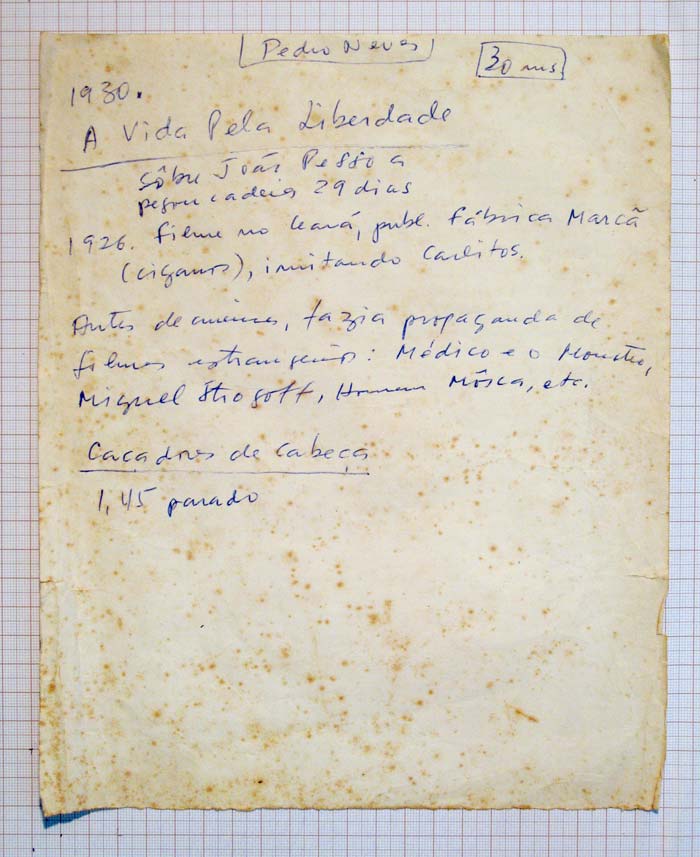 Pedro Neves
30 ms
1930.
A Vida Pela Liberdade
sôbre João Pessoa
pegou cadeia 29 dias
1926. filme no Ceará, publ. Fábrica Marcã
(ciganos), imitando Carlitos.
Antes de, fazia propaganda de
filmes estrangeiros: Médico e o Monstro,
Miguel Strogoff, Homem Môsca, etc.
Caçadores de Cabeça
1,45 parado